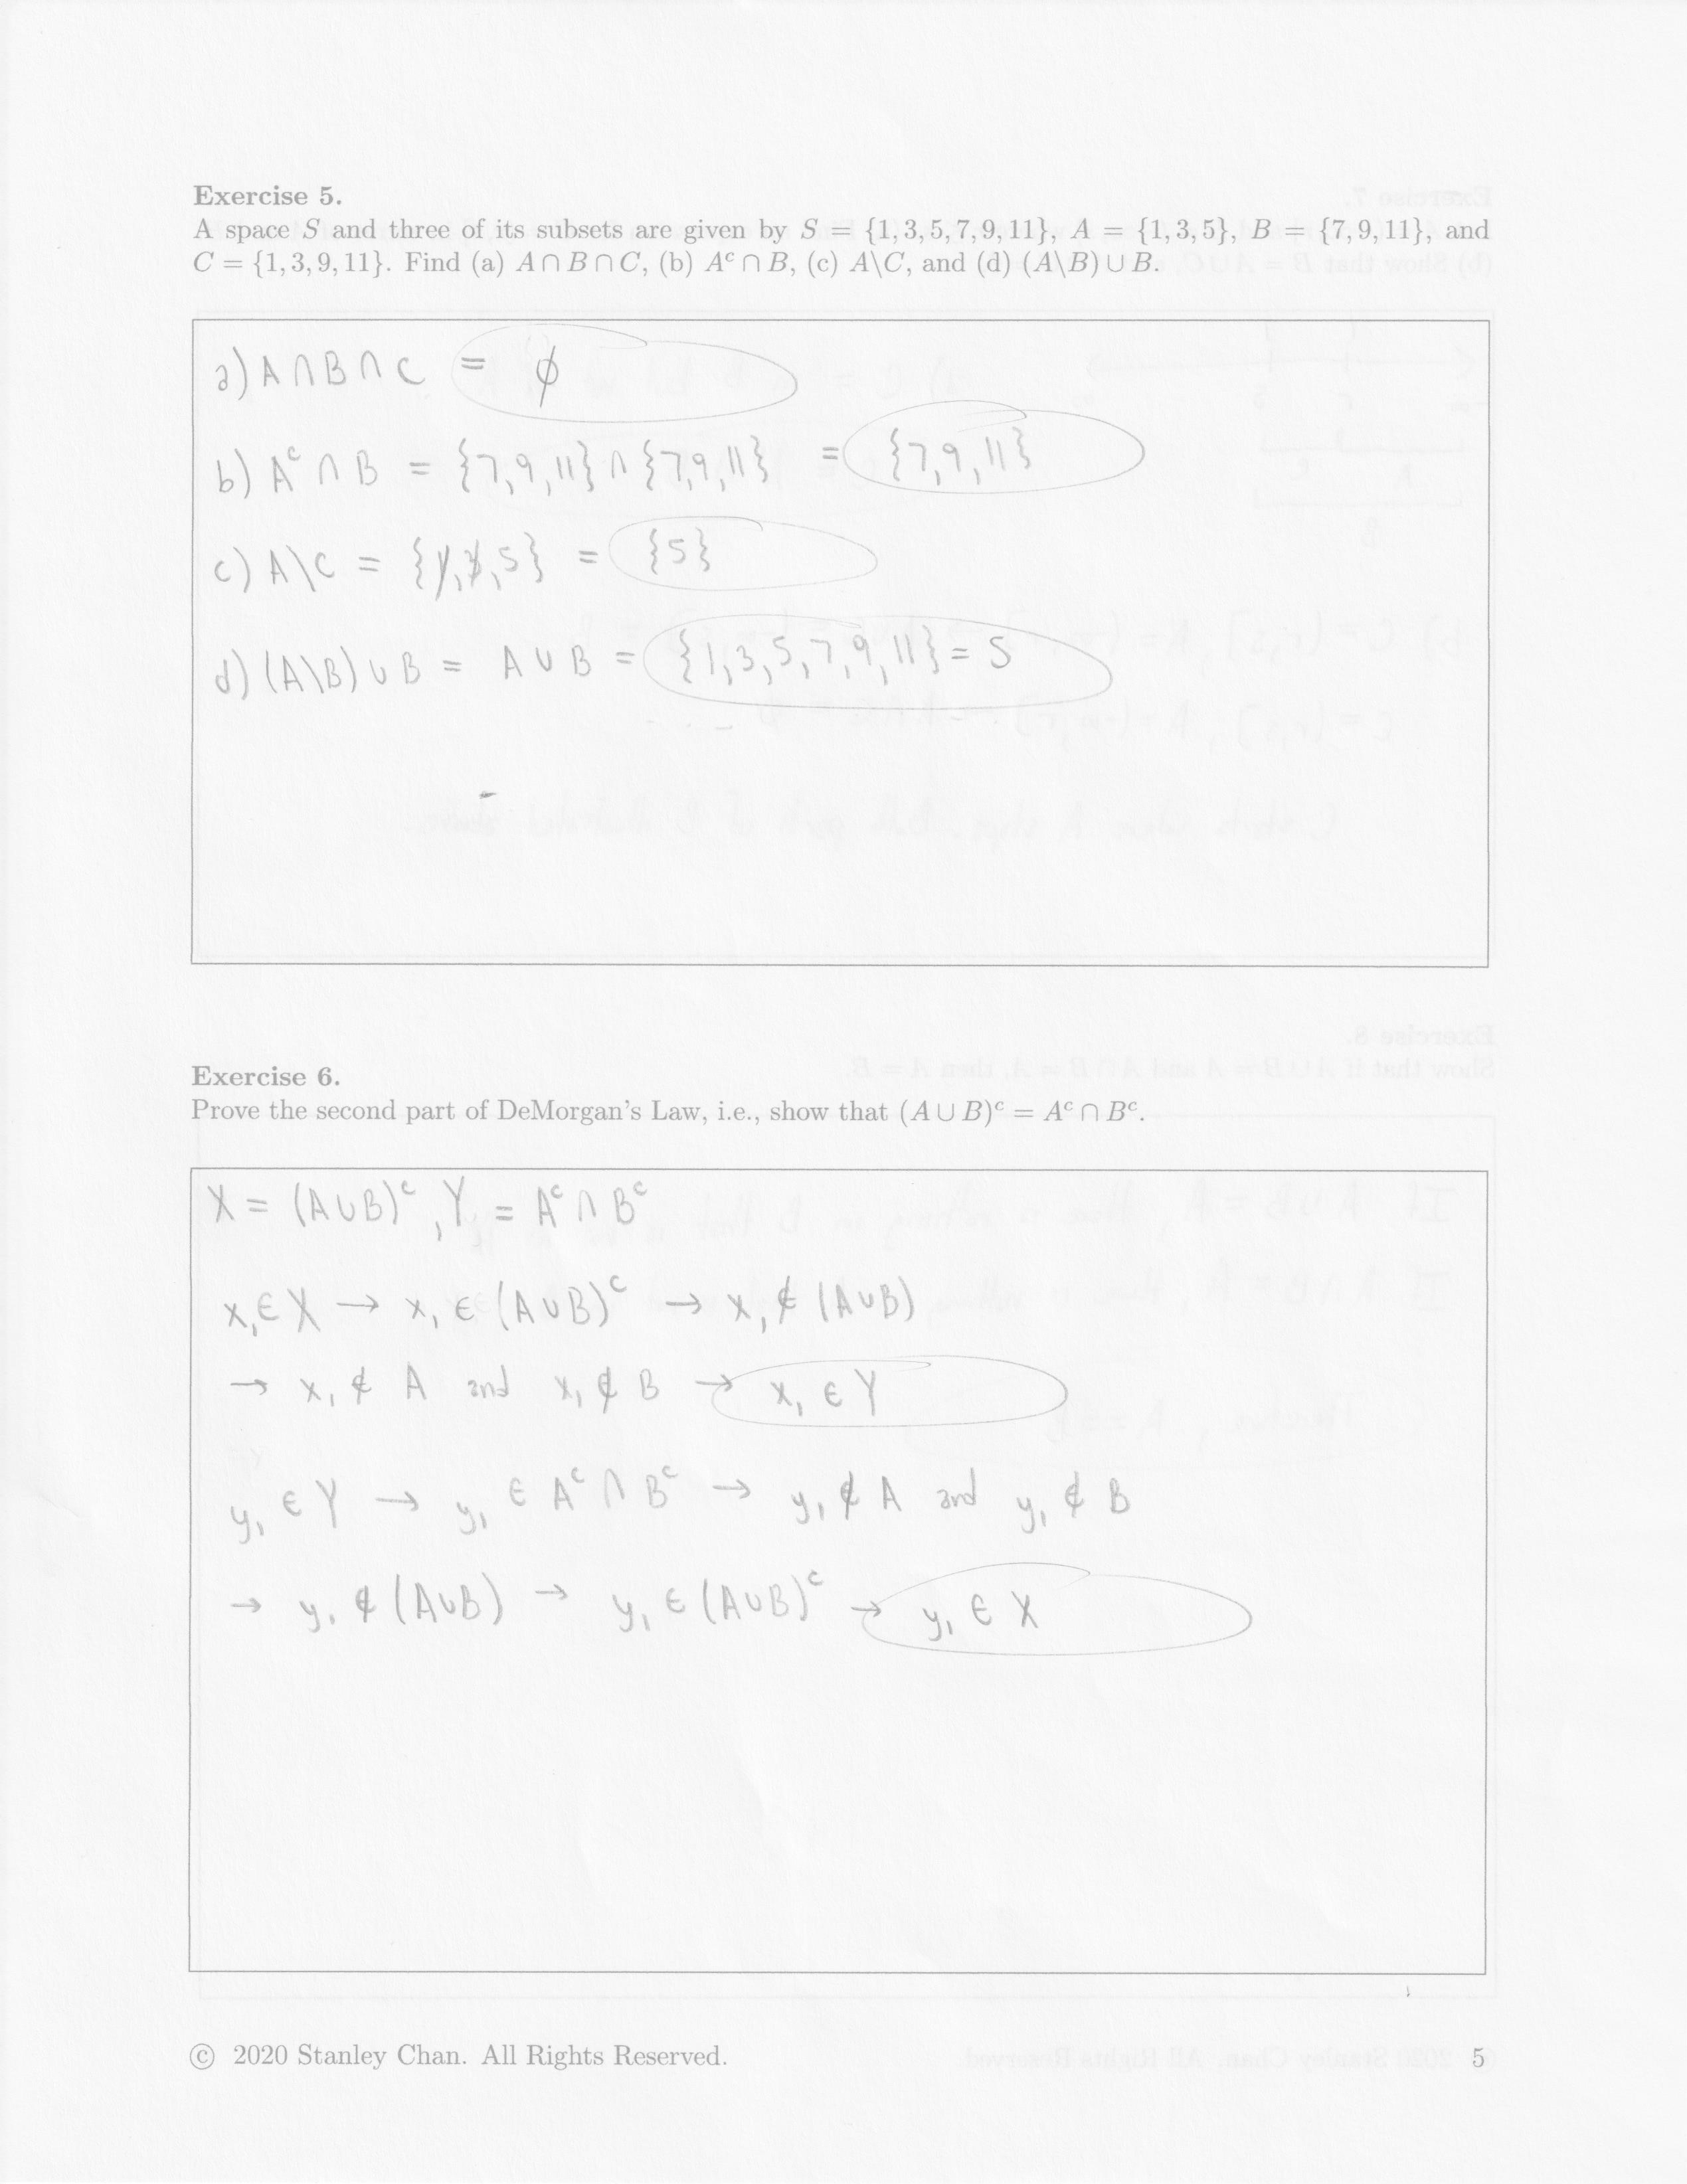 Exercise 5.
A space S and three of its subsets are given by S = {1, 3, 5, 7, 9, 11}, A = {1, 3, 5}, B = {7, 9, 11}, and
C = {1, 3, 9, 11}. Find (a) A ∩ B ∩ C, (b) Aᶜ ∩ B, (c) A\C, and (d) (A\B) ∪ B.
a) A ∩ B ∩ C = ϕ
b) Aᶜ ∩ B = {7, 9, 11} ∩ {7, 9, 11} = {7, 9, 11}
c) A\C = {1, 3, 5} = {5}
d) (A\B) ∪ B = A ∪ B = {1, 3, 5, 7, 9, 11} = S
Exercise 6.
Prove the second part of DeMorgan's Law, i.e., show that (A ∪ B)ᶜ = Aᶜ ∩ Bᶜ.
X = (A∪B)ᶜ, Y = Aᶜ ∩ Bᶜ
x₁ ∈ X → x₁ ∈ (A∪B)ᶜ → x₁ ∉ (A∪B)
→ x₁ ∉ A and x₁ ∉ B → x₁ ∈ Y
y₁ ∈ Y → y₁ ∈ Aᶜ ∩ Bᶜ → y₁ ∉ A and y₁ ∉ B
→ y₁ ∉ (A∪B) → y₁ ∈ (A∪B)ᶜ → y₁ ∈ X
© 2020 Stanley Chan. All Rights Reserved. 5